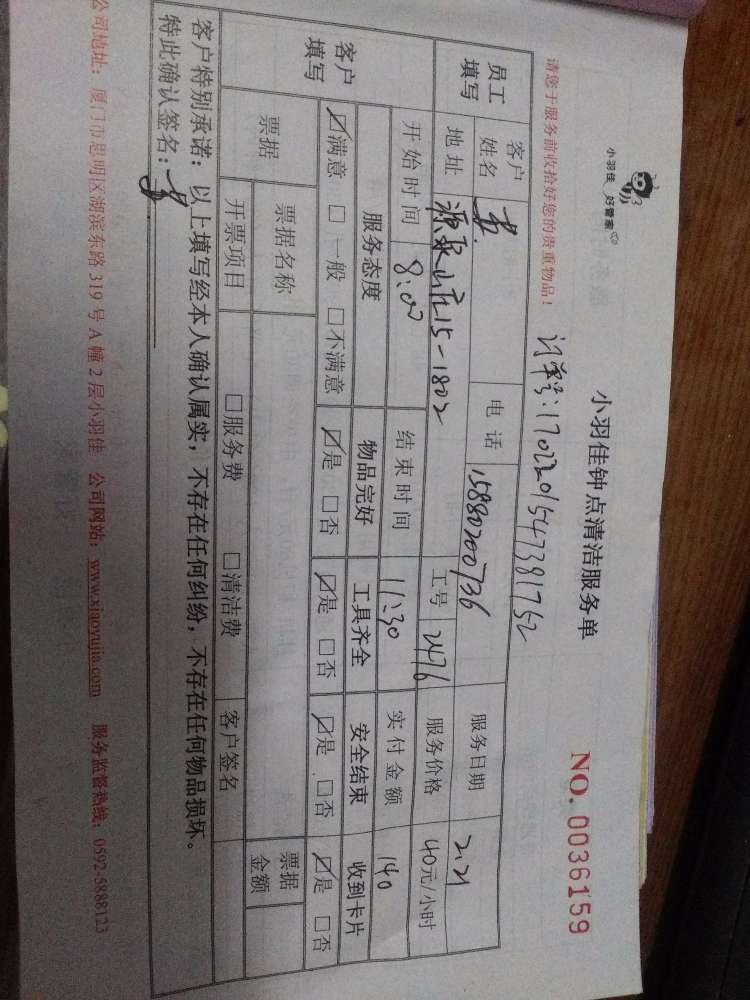 小羽佳 好管家
小羽佳钟点清洁服务单
NO. 0036159
请您于服务前收拾好您的贵重物品!
订单号:1702201547381752
员工填写
客户姓名
电话 15880200736
服务日期 2.21
地址 源泉山庄15-1802
工号 2476
服务价格 40元/小时
开始时间 8:00
结束时间 11:30
实付金额 140
客户填写
服务态度 物品完好 工具齐全 安全结束 收到卡片
☑满意 □一般 □不满意 ☑是 □否 ☑是 □否 ☑是 □否 ☑是 □否
票据
票据名称
票据金额
开票项目 □服务费 □清洁费 客户签名
客户特别承诺:以上填写经本人确认属实,不存在任何纠纷,不存在任何物品损坏。
特此确认签名:
公司地址:厦门市思明区湖滨东路319号A幢2层小羽佳 公司网站:www.xiaoyujia.com 服务监督热线:0592-5888123